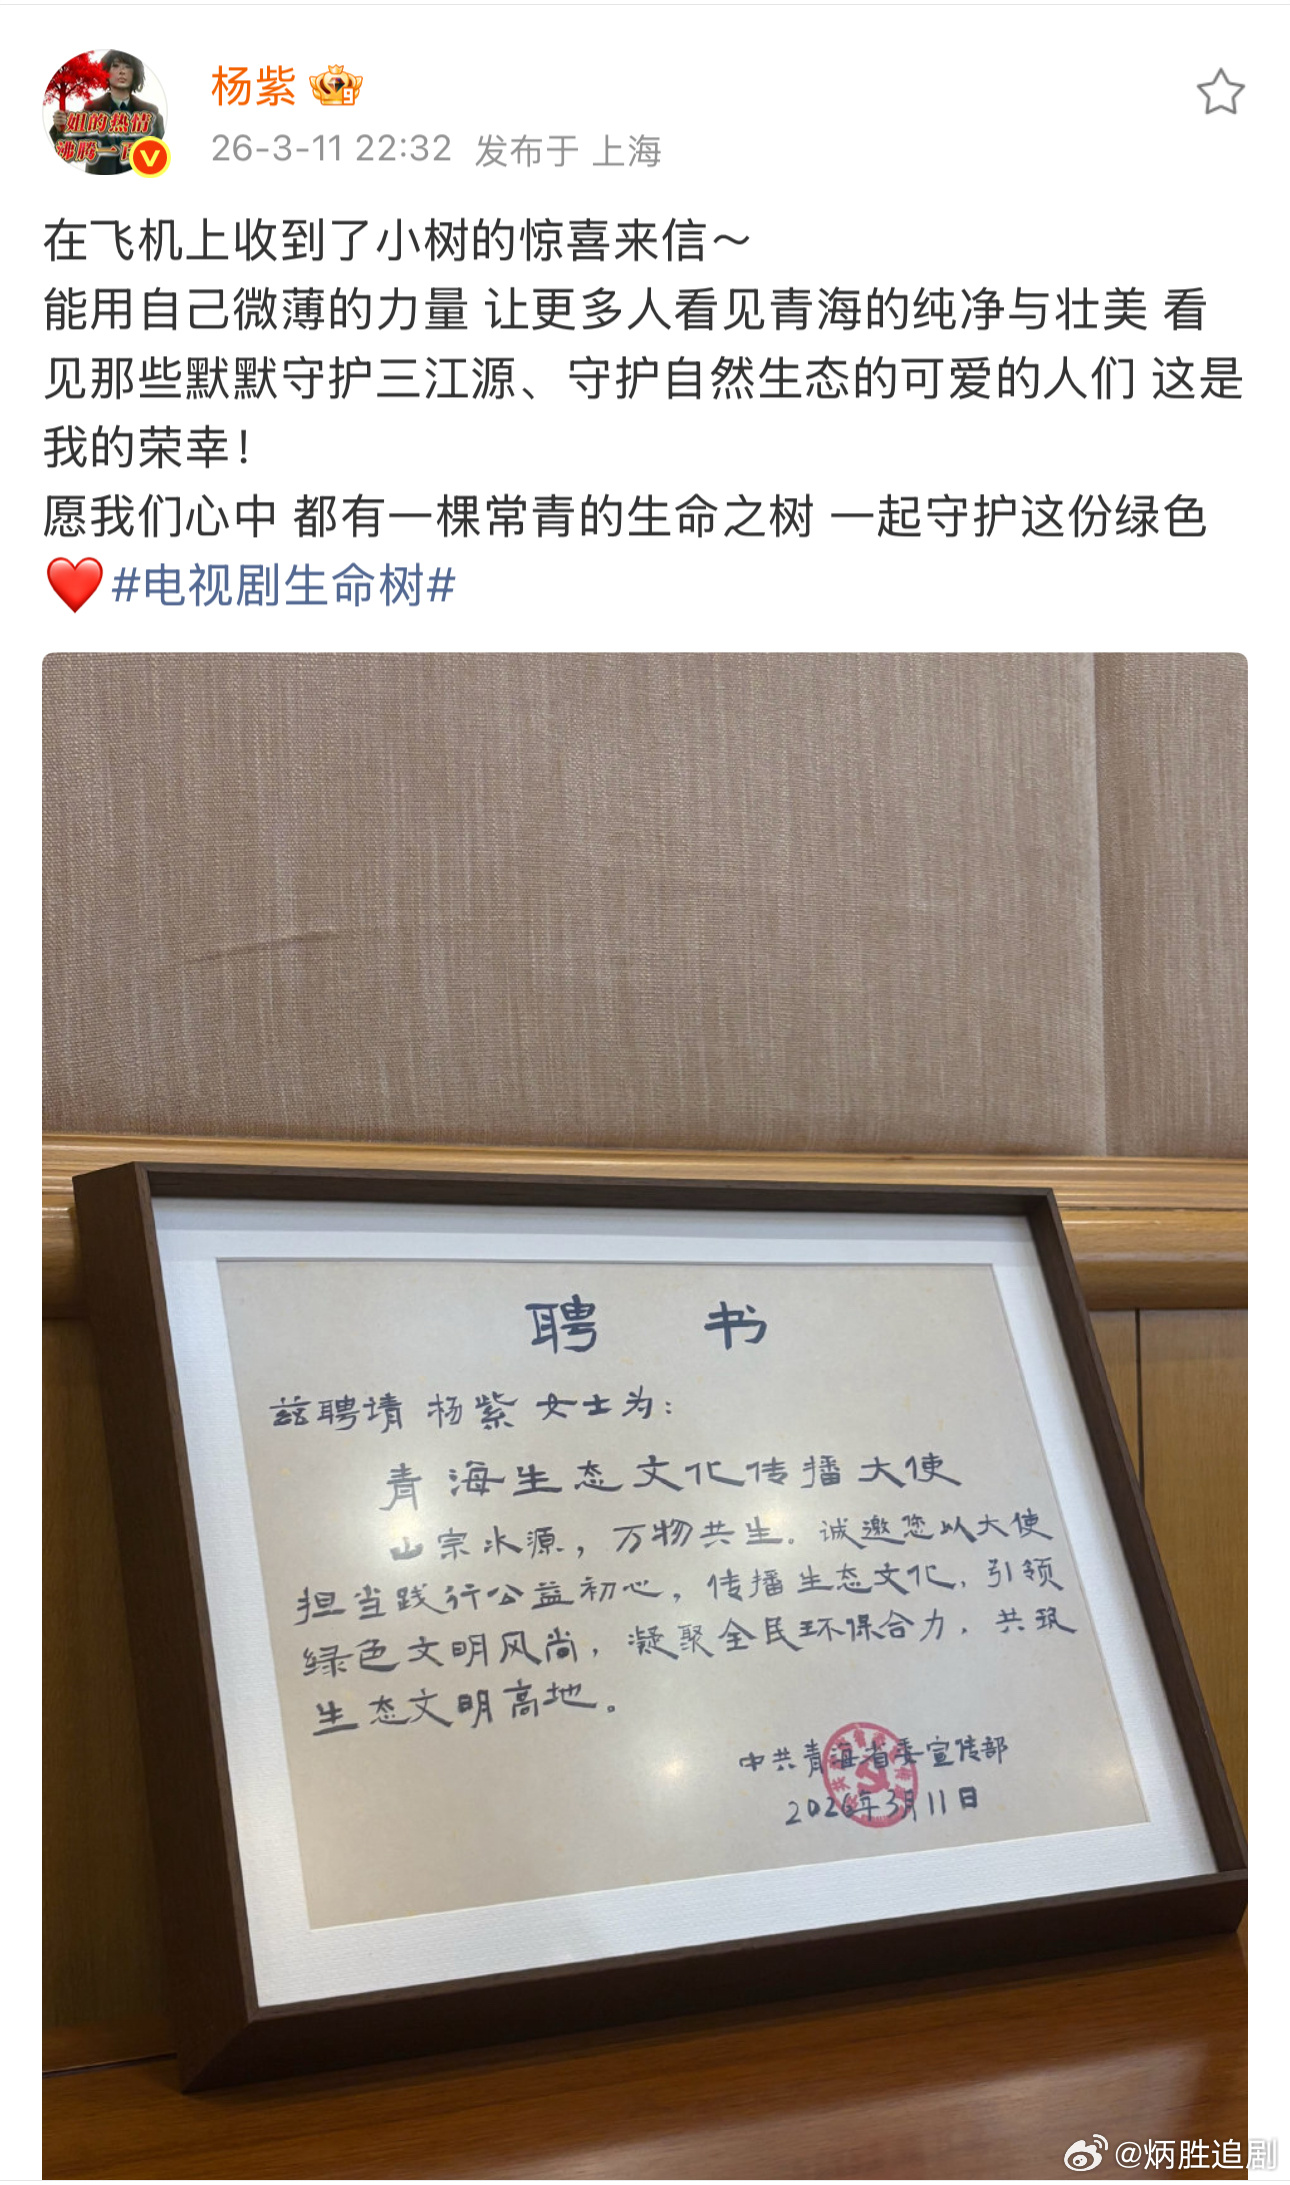 杨紫
9
26-3-11 22:32 发布于 上海
姐的热情
沸腾一
在飞机上收到了小树的惊喜来信～
能用自己微薄的力量 让更多人看见青海的纯净与壮美 看
见那些默默守护三江源、守护自然生态的可爱的人们 这是
我的荣幸！
愿我们心中 都有一棵常青的生命之树 一起守护这份绿色
❤️#电视剧生命树#
聘 书
兹聘请 杨紫 女士为：
青海生态文化传播大使
山宗水源，万物共生。诚邀您以大使
担当践行公益初心，传播生态文化，引领
绿色文明风尚，凝聚全民环保合力，共筑
生态文明高地。
中共青海省委宣传部
2026年3月11日
@炳胜追剧